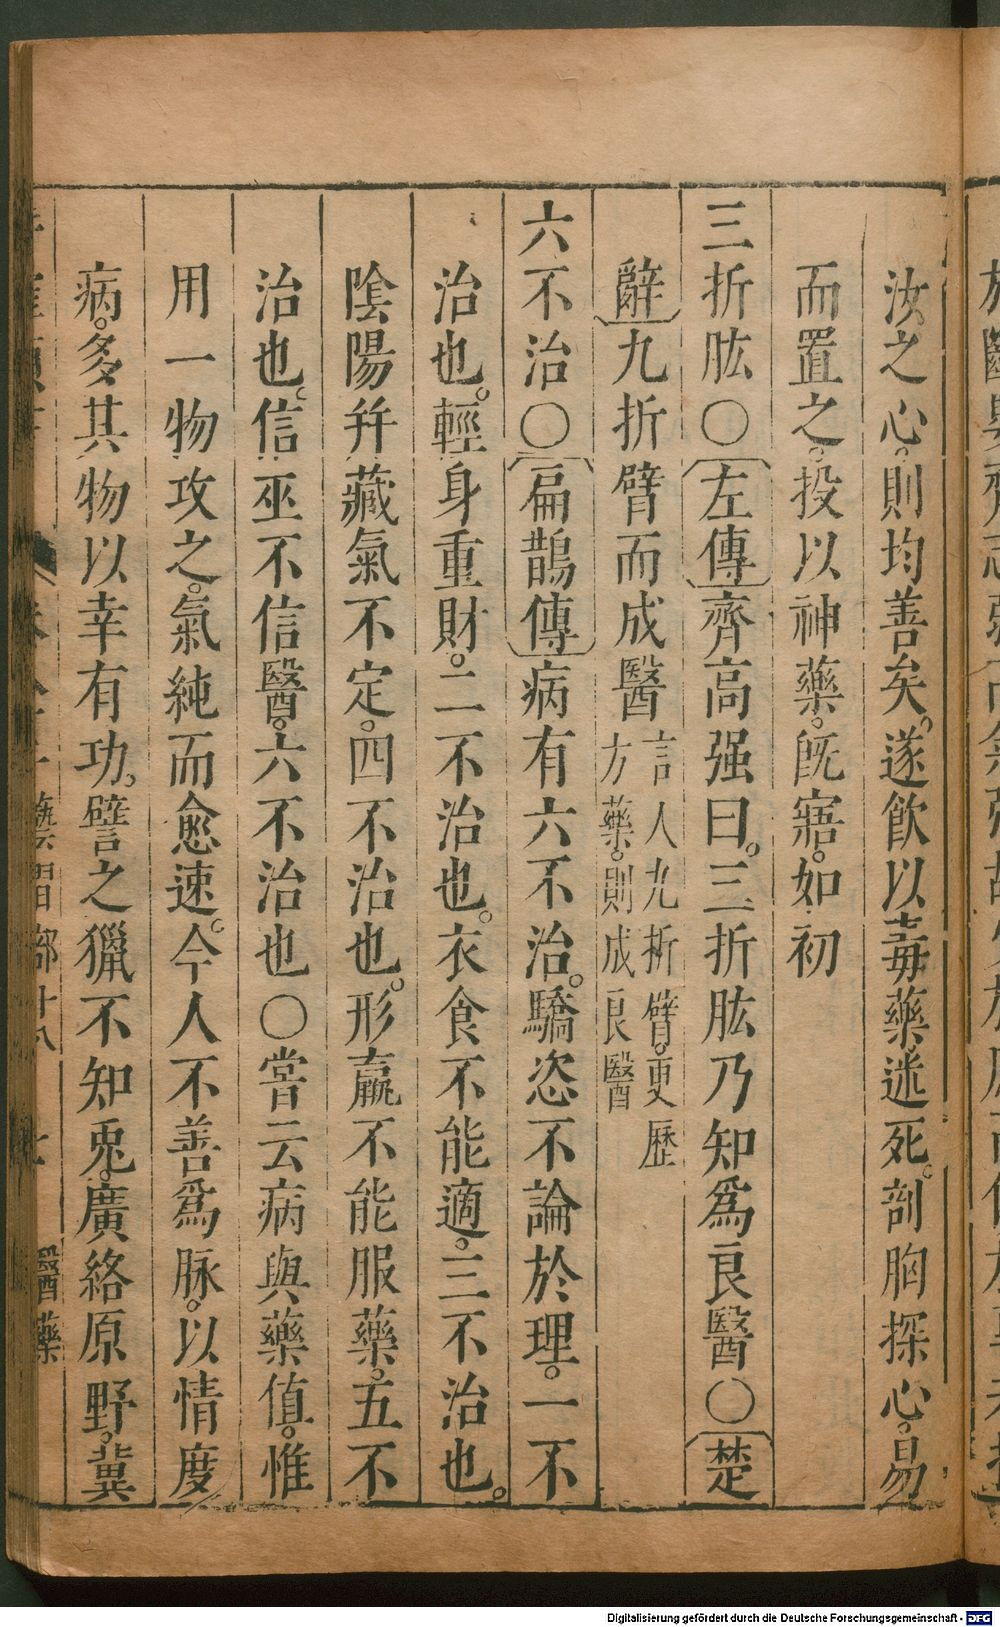 汝之心。則均善矣。遂飲以毒藥迷死。剖胸探心。易
而置之。投以神藥。旣寤。如初
三折肱〇左傳齊高强曰。三折肱乃知爲良醫〇楚
辭九折臂而成醫言人九折臂。更歷方藥。則成良醫
六不治〇扁鵲傳病有六不治。驕恣不論於理。一不
治也。輕身重財。二不治也。衣食不能適。三不治也。
陰陽幷藏氣不定。四不治也。形羸不能服藥。五不
治也。信巫不信醫。六不治也〇嘗云病與藥値。惟
用一物攻之。氣純而愈速。今人不善爲脉。以情度
病。多其物以幸有功。譬之獵不知兎。廣絡原野。冀
部十八 醫藥
Digitalisierung gefördert durch die Deutsche Forschungsgemeinschaft - DFG